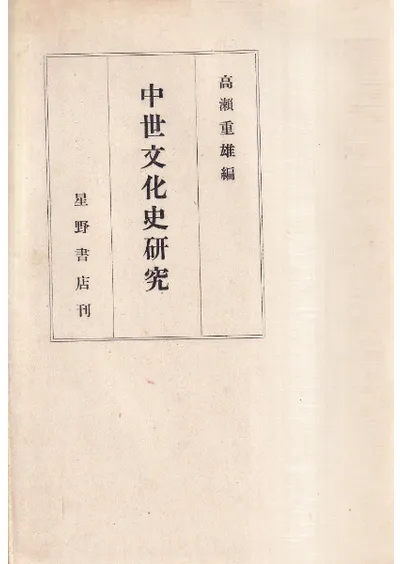 高瀨重雄編
中世文化史研究
星野書店刊